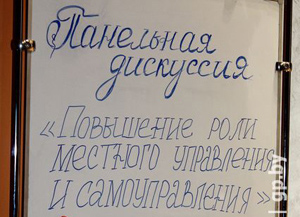 Панельная
дискуссия
«Повышение роли
местного управления
и самоуправления»
gp.by